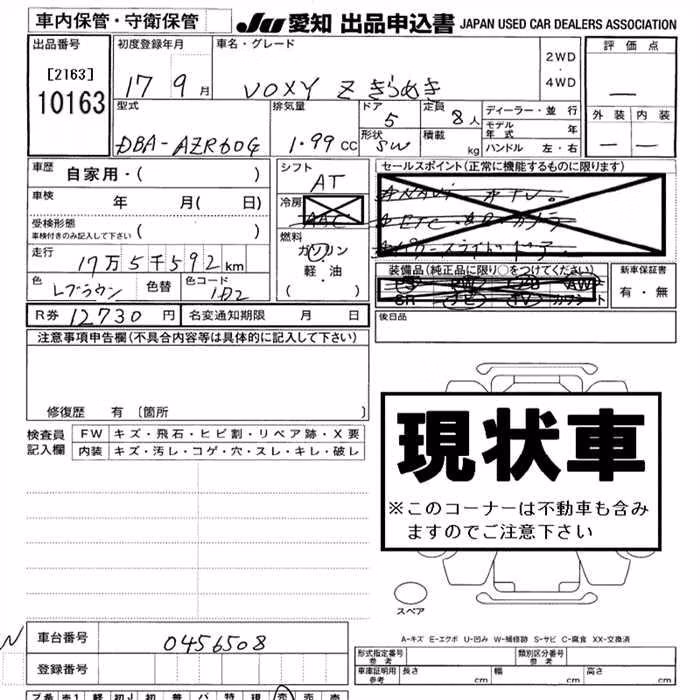 車内保管・守衛保管
JU 愛知 出品申込書 JAPAN USED CAR DEALERS ASSOCIATION
出品番号
[2163]
10163
初度登録年月
17 9 月
車名・グレード
VOXY Z きらめき
2WD
・
4WD
評価点
—
外装 内装
— —
型式
DBA-AZR60G
排気量
1.99 CC
ドア
5
定員
8 人
形状
SW
積載
kg
ディーラー・並行
モデル年式 年
ハンドル 左・右
車歴 自家用・( )
車検 年 月( 日)
受検形態
車検付きのみ記入して下さい ( )
走行
17万5千592 km
色
レブラウン
色替
色コード
1D2
シフト
AT
冷房
AAC
燃料
ガソリン
・
軽・油
( )
セールスポイント(正常に機能するものに限ります)
装備品(純正品に限り○をつけてください)
SR ナビ TV カワシート
AW
新車保証書
有・無
R券 12730 円
名変通知期限 月 日
後日品
注意事項申告欄(不具合内容等は具体的に記入して下さい)
修復歴 有 〔箇所 〕
検査員
記入欄
FW キズ・飛石・ヒビ割・リペア跡・X要
内装 キズ・汚レ・コゲ・穴・スレ・キレ・破レ
現状車
※このコーナーは不動車も含み
ますのでご注意下さい
スペア
A-キズ E-エクボ U-凹み W-補修跡 S-サビ C-腐食 XX-交換済
車台番号 0456508
登録番号
型式指定番号
参考
類別区分番号
参考
車庫証明用
参考
長さ cm 幅 cm 高さ cm